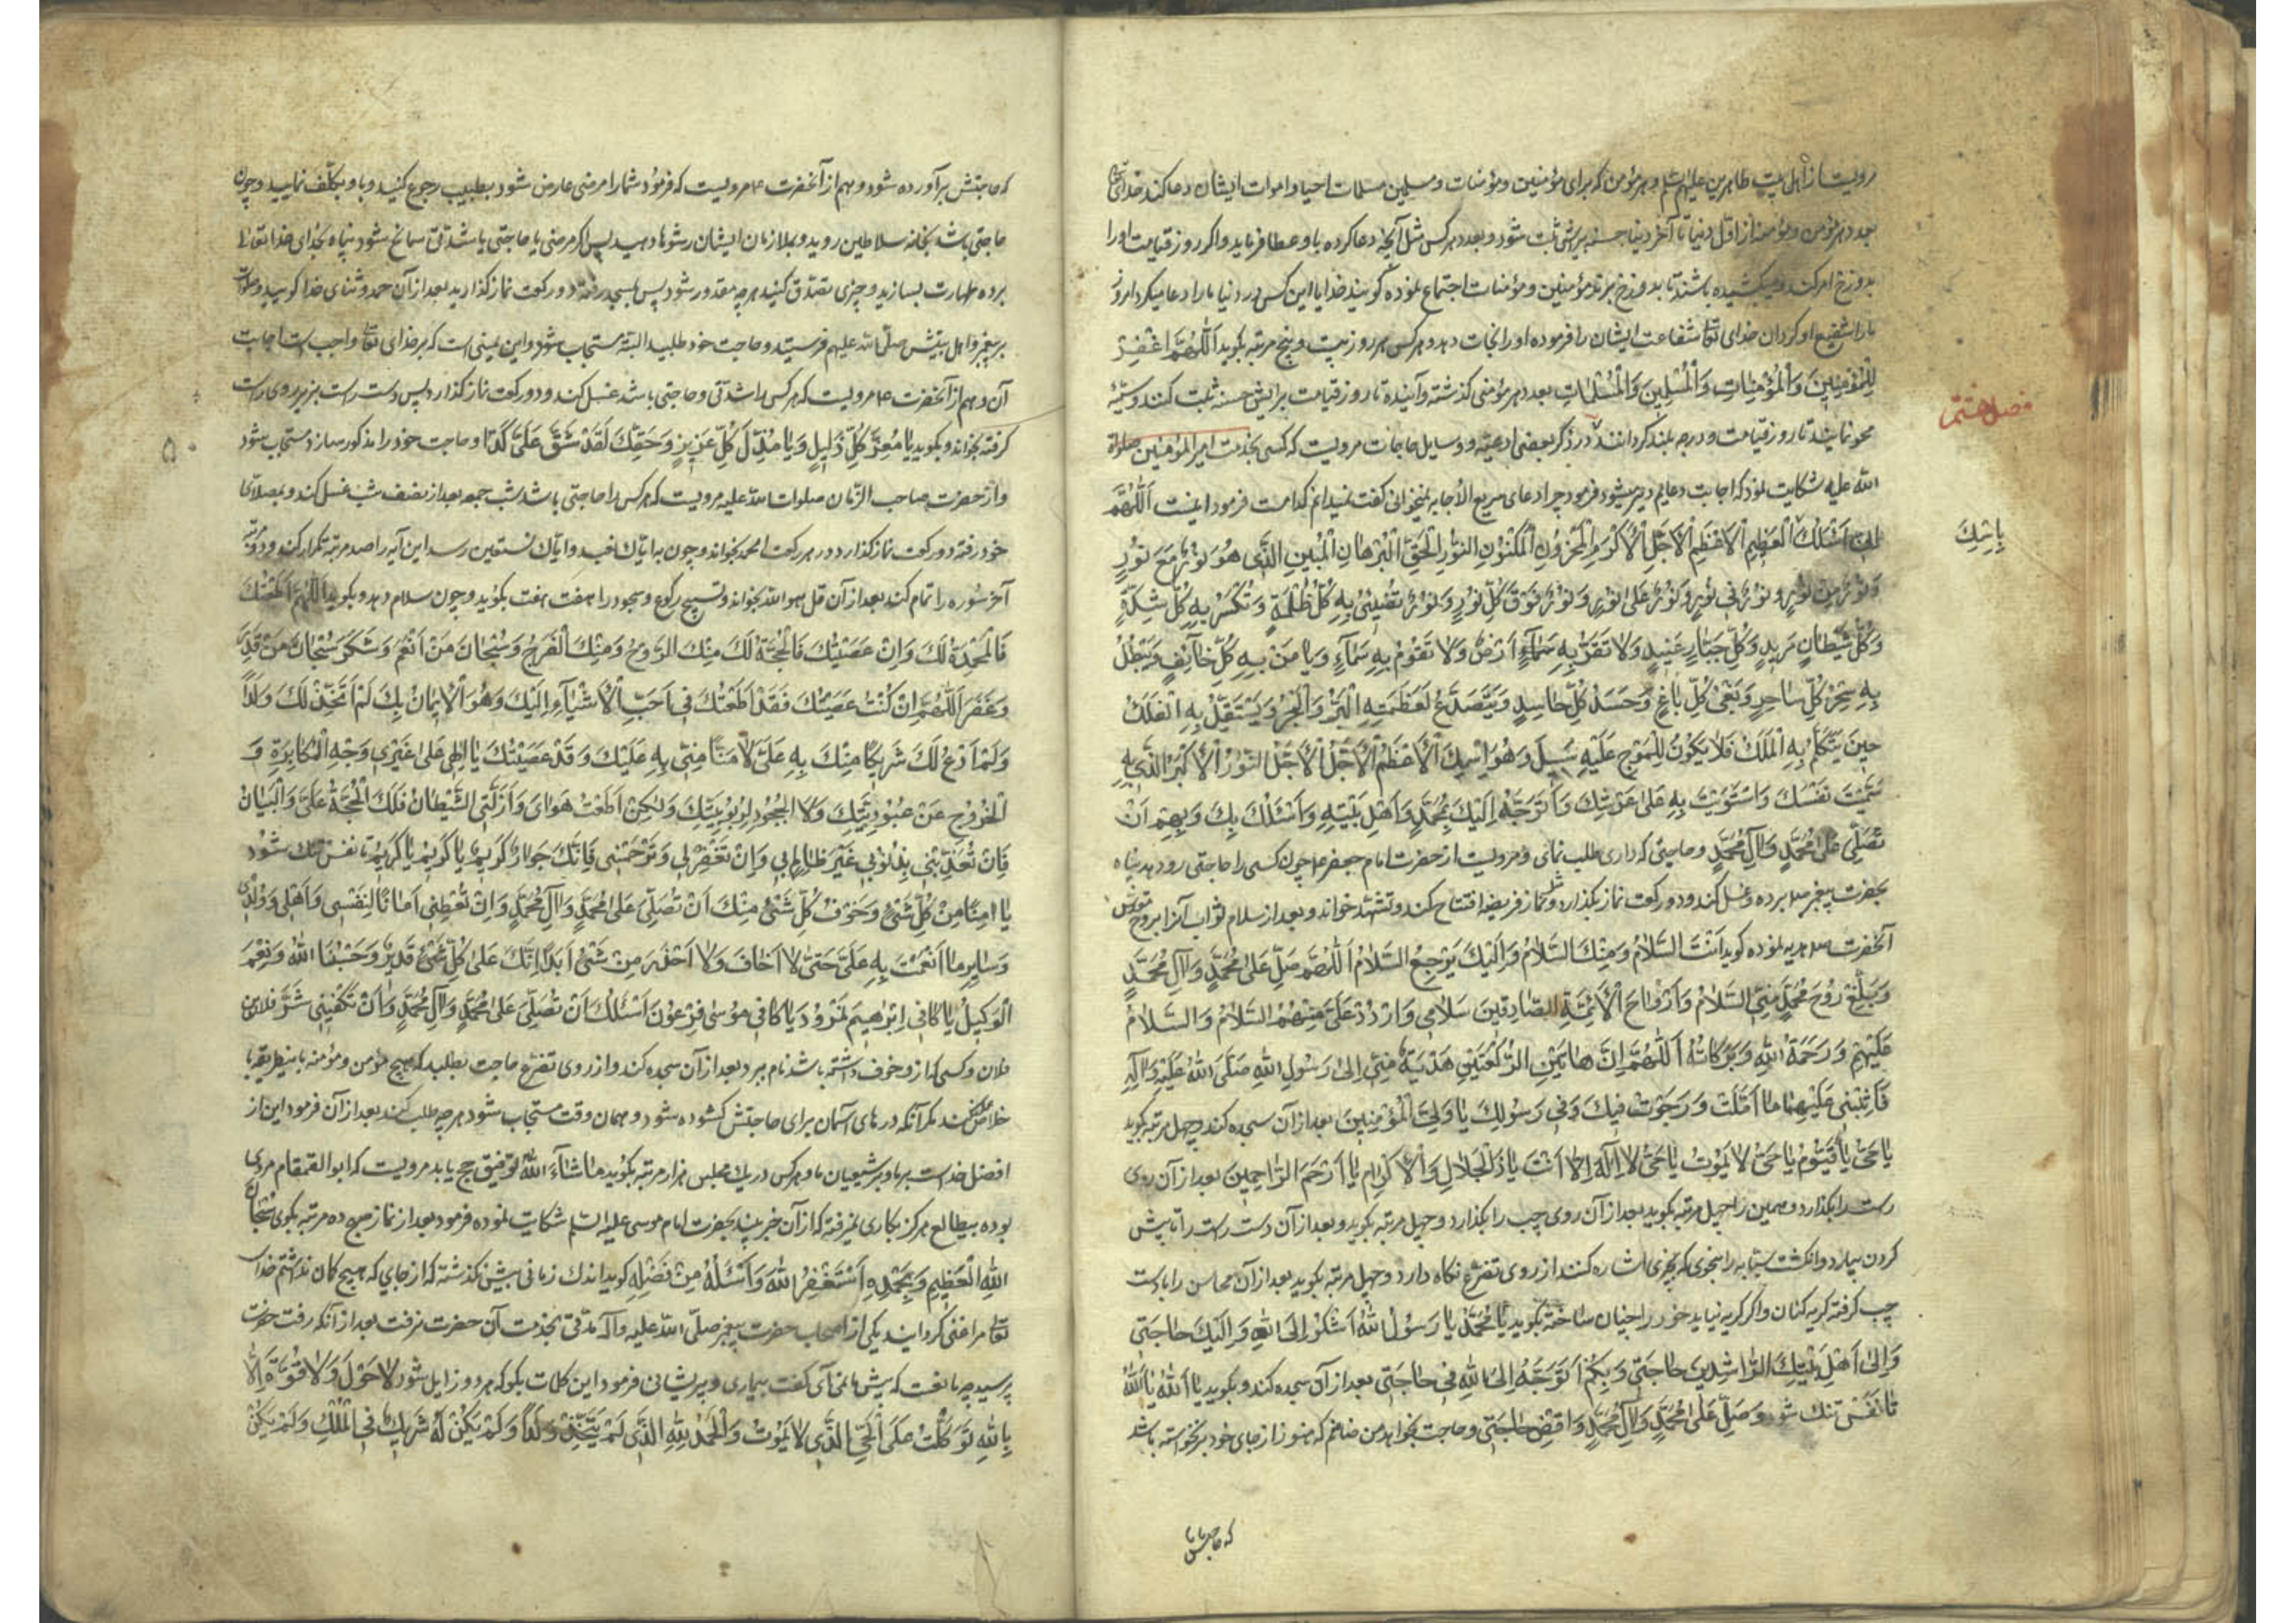 مرویست از اهل بیت طاهرین علیهم السلم و هر مؤمن که برای مؤمنین و مؤمنات و مسلمین و مسلمات احیا و اموات ایشان دعا کند خدای تعالی
بعدد هر مؤمن و مؤمنه از اول دنیا تا آخر دنیا حسنه برایش ثبت شود و بعدد هر کس مثل آنچه دعا کرده باو عطا فرماید و اگر روز قیامت او را
بدوزخ امر کنند و میکشیده باشند تا بدوزخ برند مؤمنین و مؤمنات اجتماع نموده گویند خدایا این کس در دنیا ما را دعا میکرد امروز
ما را شفیع او گردان خدای تعالی شفاعت ایشان را فرموده او را نجات دهد و هر کس هر روز بیست و پنج مرتبه بگوید اَللّٰهُمَّ اغْفِرْ
لِلْمُؤْمِنِینَ وَالْمُؤْمِنَاتِ وَالْمُسْلِمِینَ وَالْمُسْلِمَاتِ بعدد هر مؤمنی گذشته و آینده تا روز قیامت برایش حسنه ثبت کنند و سیئه
فصل هشتم
محو نمایند تا روز قیامت و درجه بلند گردانند در ذکر بعضی ادعیه و وسایل حاجات مرویست که کسی بخدمت امیر المؤمنین صلوة
الله علیه شکایت نمود که اجابت دعایم دیر میشود فرمود چرا دعای سریع الاجابه نمیخوانی گفت نمیدانم کدامست فرمود اینست اَللّٰهُمَّ
اِنِّی اَسْئَلُكَ الْعَظِیمِ الْاَعْظَمِ الْاَجَلِّ الْاَکْرَمِ الْمَخْزُونِ الْمَکْنُونِ النُّورِ الْحَقِّ الْبُرْهَانِ الْمُبِینِ الَّذِی هُوَ نُورٌ مَعَ نُورٍ
بِاسْمِكَ
وَنُورٌ مِنْ نُورٍ وَنُورٌ فِی نُورٍ وَنُورٌ عَلٰی نُورٍ وَنُورٌ فَوْقَ کُلِّ نُورٍ وَنُورٌ تُضِیئُ بِهِ کُلُّ ظُلْمَةٍ وَتُکْسَرُ بِهِ کُلُّ شِدَّةٍ
وَکُلُّ شَیْطَانٍ مَرِیدٍ وَکُلُّ جَبَّارٍ عَنِیدٍ وَلَا تَقَرُّ بِهِ اَرْضٌ وَلَا تَقُومُ بِهِ سَمَآءٌ وَیَامَنُ بِهِ کُلُّ خَائِفٍ وَیَبْطُلُ
بِهِ سِحْرُ کُلِّ سَاحِرٍ وَبَغْیُ کُلِّ بَاغٍ وَحَسَدُ کُلِّ حَاسِدٍ وَیَتَصَدَّعُ لِعَظَمَتِهِ الْبَرُّ وَالْبَحْرُ وَیَسْتَقِلُّ بِهِ الْفَلَكُ
حِینَ یَتَکَلَّمُ بِهِ الْمَلَكُ فَلَا یَکُونُ لِلْمَوْجِ عَلَیْهِ سَبِیلٌ وَهُوَ اسْمُكَ الْاَعْظَمُ الْاَجَلُّ الْاَجَلُّ النُّورُ الْاَکْبَرُ الَّذِی بِهِ
سَمَّیْتَ نَفْسَكَ وَاسْتَوَیْتَ بِهِ عَلٰی عَرْشِكَ وَاَتَوَجَّهُ اِلَیْكَ بِمُحَمَّدٍ وَاَهْلِ بَیْتِهِ وَاَسْئَلُكَ بِكَ وَبِهِمْ اَنْ
تُصَلِّیَ عَلٰی مُحَمَّدٍ وَآلِ مُحَمَّدٍ و حاجتی که داری طلب نمائی و مرویست از حضرت امام جعفر ع چون کسی را حاجتی رود هد پناه
بحضرت پیغمبر ص برده و غسل کند و دو رکعت نماز بگذارد مثل نماز فریضه افتتاح کند و تشهد خواند و بعد از سلام ثواب آنرا بروح مقدس
آنحضرت ص هدیه نموده گوید اَنْتَ السَّلَامُ وَمِنْكَ السَّلَامُ وَاِلَیْكَ یَرْجِعُ السَّلَامُ اَللّٰهُمَّ صَلِّ عَلٰی مُحَمَّدٍ وَآلِ مُحَمَّدٍ
وَبَلِّغْ رُوحَ مُحَمَّدٍ مِنِّی السَّلَامَ وَاَرْوَاحَ الْاَئِمَّةِ الصَّادِقِینَ سَلَامِی وَارْدُدْ عَلَیَّ مِنْهُمُ السَّلَامَ وَالسَّلَامُ
عَلَیْهِمْ وَرَحْمَةُ اللّٰهِ وَبَرَکَاتُهُ اَللّٰهُمَّ اِنَّ هَاتَیْنِ الرَّکْعَتَیْنِ هَدِیَّةٌ مِنِّی اِلٰی رَسُولِ اللّٰهِ صَلَّی اللّٰهُ عَلَیْهِ وَآلِهِ
فَاَثِبْنِی عَلَیْهِمَا مَا اَمَّلْتُ وَرَجَوْتُ فِیكَ وَفِی رَسُولِكَ یَا وَلِیَّ الْمُؤْمِنِینَ بعد از آن سجده کند و چهل مرتبه بگوید
یَا حَیُّ یَا قَیُّومُ یَا حَیُّ لَا یَمُوتُ یَا حَیُّ لَا اِلٰهَ اِلَّا اَنْتَ یَا ذَا الْجَلَالِ وَالْاِکْرَامِ یَا اَرْحَمَ الرَّاحِمِینَ بعد از آن روی
راست را بگذارد و همین را چهل مرتبه بگوید بعد از آن روی چپ را بگذارد و چهل مرتبه بگوید و بعد از آن دست راست را تا پیش
کردن بیارد و انگشت سبابه را بنحوی که بچیزی اشاره کنند از روی تضرع نگاه دارد و چهل مرتبه بگوید بعد از آن محاسن را با دست
چپ گرفته گریه کنان و اگر گریه نیاید خود را چنان ساخته بگوید یَا مُحَمَّدُ یَا رَسُولَ اللّٰهِ اَشْکُو اِلَی اللّٰهِ وَاِلَیْكَ حَاجَتِی
وَاِلٰی اَهْلِ بَیْتِكَ الرَّاشِدِینَ حَاجَتِی وَبِکُمْ اَتَوَجَّهُ اِلَی اللّٰهِ فِی حَاجَتِی بعد از آن سجده کند و بگوید یَا اَللّٰهُ یَا اَللّٰهُ
تا نفس تنك شود وَصَلِّ عَلٰی مُحَمَّدٍ وَآلِ مُحَمَّدٍ وَاقْضِ حَاجَتِی و حاجت بخواهد من ضامنم که هنوز از جای خود برنخواسته باشد
که حاجتش
که حاجتش برآورده شود و هم از آنحضرت ع مرویست که فرمود شما را مرضی عارض شود بطبیب رجوع کنید و باو تکلف نمایید و چون
حاجتی باشد بخانه سلاطین روید و بملازمان ایشان رشوها دهید پس اگر مرضی یا حاجتی یا شدتی سانح شود پناه بخدای خدا تعالی
برده طهارت بسازید و چیزی تصدق کنید هر چه مقدور شود پس بمسجد رفته دو رکعت نماز گذارید بعد از آن حمد و ثنای خدا گویید و صلوات
بر پیغمبر و اهل بیتش صلی الله علیهم فرستید و حاجت خود طلبید البته مستجاب شود و این یمینی است که بر خدای تعالی واجب است اجابت
آن و هم از آنحضرت ع مرویست که هر کس را شدتی و حاجتی باشد غسل کند و دو رکعت نماز گذارد پس دست راست بزیر روی راست
گرفته بخواند و بگوید یَا مُعِزَّ کُلِّ ذَلِیلٍ وَیَا مُذِلَّ کُلِّ عَزِیزٍ وَحَقِّكَ لَقَدْ شَقَّ عَلَیَّ کَذَا و حاجت خود را مذکور سازد مستجاب شود
و از حضرت صاحب الزمان صلوات الله علیه مرویست که هر کس را حاجتی باشد شب جمعه بعد از نصف شب غسل کند و بمصلای
خود رفته دو رکعت نماز گذارد در هر رکعت الحمد بخواند و چون به ایاك نعبد و ایاك نستعین رسد این آیه را صد مرتبه تکرار کند و در مرتبه
آخر سوره را تمام کند بعد از آن قل هو الله بخواند و تسبیح رکوع و سجود را هفت هفت بگوید و چون سلام دهد بگوید اَللّٰهُمَّ اِنْ اَطَعْتُكَ
فَالْمَحْمَدَةُ لَكَ وَاِنْ عَصَیْتُكَ فَالْحُجَّةُ لَكَ مِنْكَ الرَّوْحُ وَمِنْكَ الْفَرَجُ وَسُبْحَانَ مَنْ اَنْعَمَ وَشَکَرَ سُبْحَانَ مَنْ قَدَّرَ
وَغَفَرَ اَللّٰهُمَّ اِنْ کُنْتُ عَصَیْتُكَ فَقَدْ اَطَعْتُكَ فِی اَحَبِّ الْاَشْیَآءِ اِلَیْكَ وَهُوَ الْاِیمَانُ بِكَ لَمْ اَتَّخِذْ لَكَ وَلَدًا
وَلَمْ اَدْعُ لَكَ شَرِیکًا مِنْكَ بِهِ عَلَیَّ لَا مَنًّا مِنِّی بِهِ عَلَیْكَ وَقَدْ عَصَیْتُكَ یَا اِلٰهِی عَلٰی غَیْرِ وَجْهِ الْمُکَابَرَةِ وَ
الْخُرُوجِ عَنْ عُبُودِیَّتِكَ وَلَا الْجُحُودِ لِرُبُوبِیَّتِكَ وَلٰکِنْ اَطَعْتُ هَوَایَ وَاَزَلَّنِی الشَّیْطَانُ فَلَكَ الْحُجَّةُ عَلَیَّ وَالْبَیَانُ
فَاِنْ تُعَذِّبْنِی بِذُنُوبِی غَیْرُ ظَالِمٍ لِی وَاِنْ تَغْفِرْ لِی وَتَرْحَمْنِی فَاِنَّكَ جَوَادٌ کَرِیمٌ یَا کَرِیمُ یَا کَرِیمُ تا نفس تنك شود
یَا اٰمِنًا مِنْ کُلِّ شَیْءٍ وَخَوْفُ کُلِّ شَیْءٍ مِنْكَ اَنْ تُصَلِّیَ عَلٰی مُحَمَّدٍ وَآلِ مُحَمَّدٍ وَاَنْ تُعْطِیَنِی اَمَانًا لِنَفْسِی وَاَهْلِی وَوُلْدِی
وَسَایِرِ مَا اَنْعَمْتَ بِهِ عَلَیَّ حَتّٰی لَا اَخَافَ وَلَا اَحْذَرَ مِنْ شَیْءٍ اَبَدًا اِنَّكَ عَلٰی کُلِّ شَیْءٍ قَدِیرٌ وَحَسْبُنَا اللّٰهُ وَنِعْمَ
الْوَکِیلُ یَا کَافِیَ اِبْرٰهِیمَ نَمْرُودَ یَا کَافِیَ مُوسٰی فِرْعَوْنَ اَسْئَلُكَ اَنْ تُصَلِّیَ عَلٰی مُحَمَّدٍ وَآلِ مُحَمَّدٍ وَاَنْ تَکْفِیَنِی شَرَّ فلان بن
فلان و کسی که از و خوف داشته باشد نام ببرد بعد از آن سجده کند و از روی تضرع حاجت بطلبد که هیچ مؤمن و مؤمنه باین طریق با
خلاص نکند مگر آنکه درهای آسمان برای حاجتش گشوده شود و همان وقت مستجاب شود هر چه طلب کند بعد از آن فرمود این از
افضل خداست بر ما و بر شیعیان ما و هر کس در یك مجلس هزار مرتبه بگوید مَا شَاءَ اللّٰهُ توفیق حج یابد مرویست که ابو القمقام مردی
بوده بیطالع هرگز بکاری نمیرفته که از آن خیر بیند بحضرت امام موسی علیه السلم شکایت نموده فرمود بعد از نماز صبح ده مرتبه بگوی سُبْحَانَ
اللّٰهِ الْعَظِیمِ وَبِحَمْدِهِ اَسْتَغْفِرُ اللّٰهَ وَاَسْئَلُهُ مِنْ فَضْلِهِ گوید اندك زمانی بیش نگذشته که از جایی که هیچ گمان نداشتم خدای
تعالی مرا غنی گردانید یکی از اصحاب حضرت پیغمبر صلی الله علیه وآله مدتی بخدمت آن حضرت نرفت بعد از آنکه رفت حضرت
پرسید چه مانعت که پیش ما نمی آی گفت بیماری و پریشانی فرمود این کلمات بگو که هر دو زایل شود لَا حَوْلَ وَلَا قُوَّةَ اِلَّا
بِاللّٰهِ تَوَکَّلْتُ عَلَی الْحَیِّ الَّذِی لَا یَمُوتُ وَالْحَمْدُ لِلّٰهِ الَّذِی لَمْ یَتَّخِذْ وَلَدًا وَلَمْ یَکُنْ لَهُ شَرِیكٌ فِی الْمُلْكِ وَلَمْ یَکُنْ